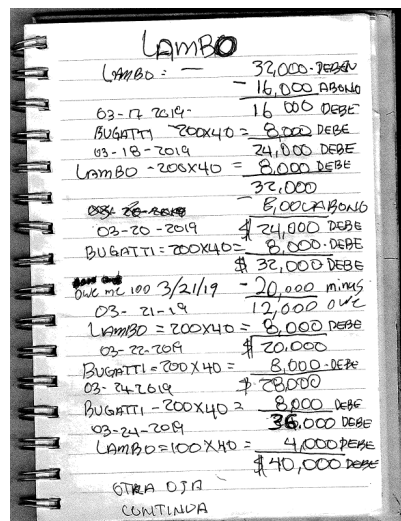 LAMBO
LAMBO: — 32,000 - DEBEN
- 16,000 ABONO
03-17 2019- 16 000 DEBE
BUGATTI - 200X40 = 8,000 DEBE
03-18-2019 24,000 DEBE
LAMBO - 200X40 = 8,000 DEBE
32,000
- 8,000 ABONO
03-20-2019 $ 24,000 DEBE
BUGATTI = 200X40 = 8,000 - DEBE
$ 32,000 DEBE
OWE ME 100 3/21/19 - 20,000 minus
03-21-19 12,000 owe
LAMBO = 200X40 = 8,000 DEBE
03-22-2019 $ 20,000
BUGATTI - 200X40 = 8,000 - DEBE
03-24 2019 $ 28,000
BUGATTI - 200X40 = 8,000 DEBE
03-24-2019 36,000 DEBE
LAMBO = 100X40 = 4,000 DEBE
$ 40,000 DEBE
OTRA OJA
CONTINUA